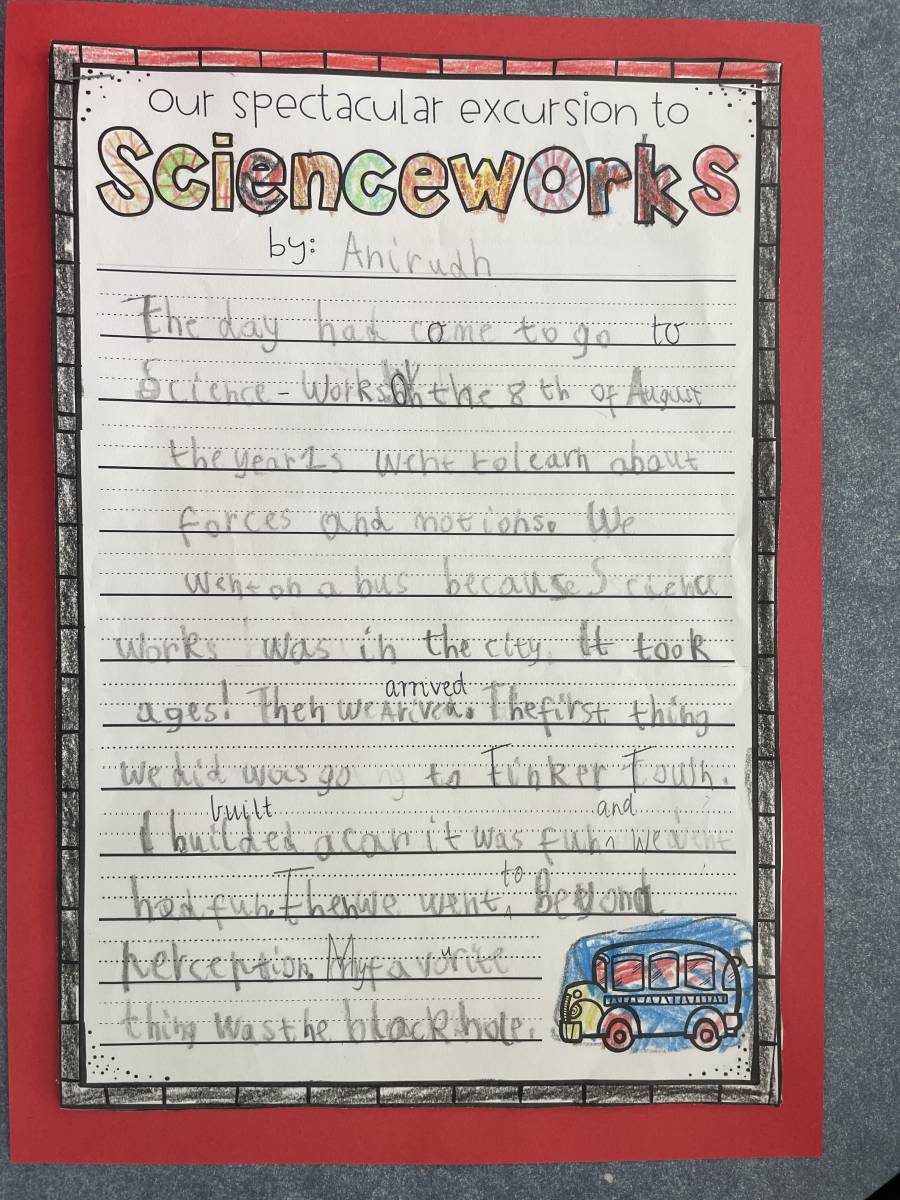 our spectacular excursion to
Scienceworks
by: Anirudh
The day had come to go to
Science-Works On the 8th of August
the year 1s went to learn about
forces and motions. We
went on a bus because Science
works was in the city. It took
arrived
ages! Then we arived. The first thing
we did was go to Tinker Town.
built and
I builded a car it was fun ^ we
had fun. Then we went ^ to Beyond
perception. My favourite
thing was the black hole.